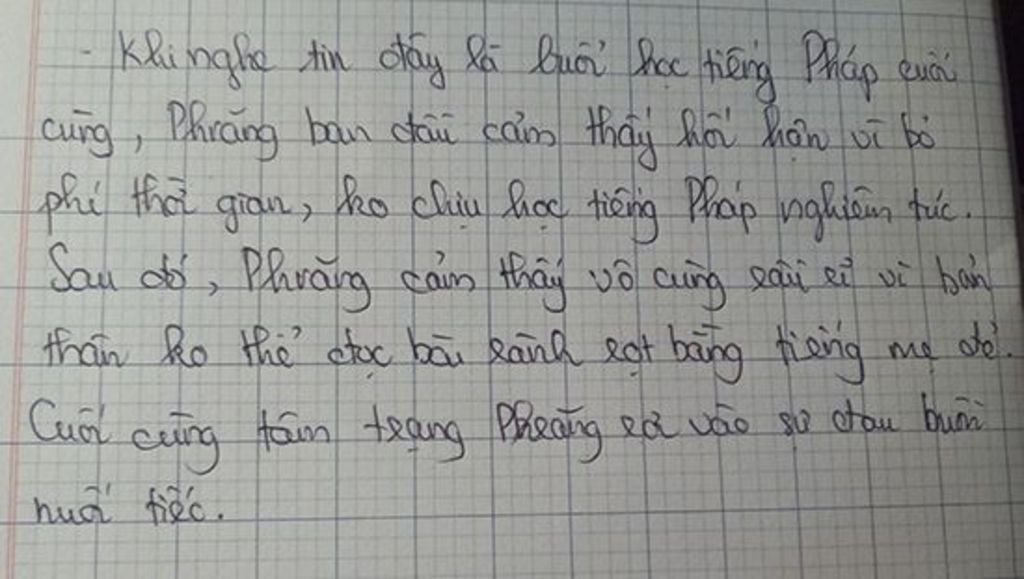 - Khi nghe tin đây là buổi học tiếng Pháp cuối
cùng, Phrăng ban đầu cảm thấy hối hận vì bỏ
phí thời gian, ko chịu học tiếng Pháp nghiêm túc.
Sau đó, Phrăng cảm thấy vô cùng xấu xí vì bản
thân ko thể đọc bài rành rọt bằng tiếng mẹ đẻ.
Cuối cùng tâm trạng Phrăng rơi vào sự đau buồn
nuối tiếc.